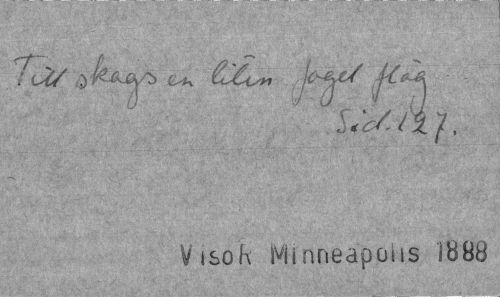 Till skogs en liten fogel flög
Sid. 127.
Visok Minneapolis 1888